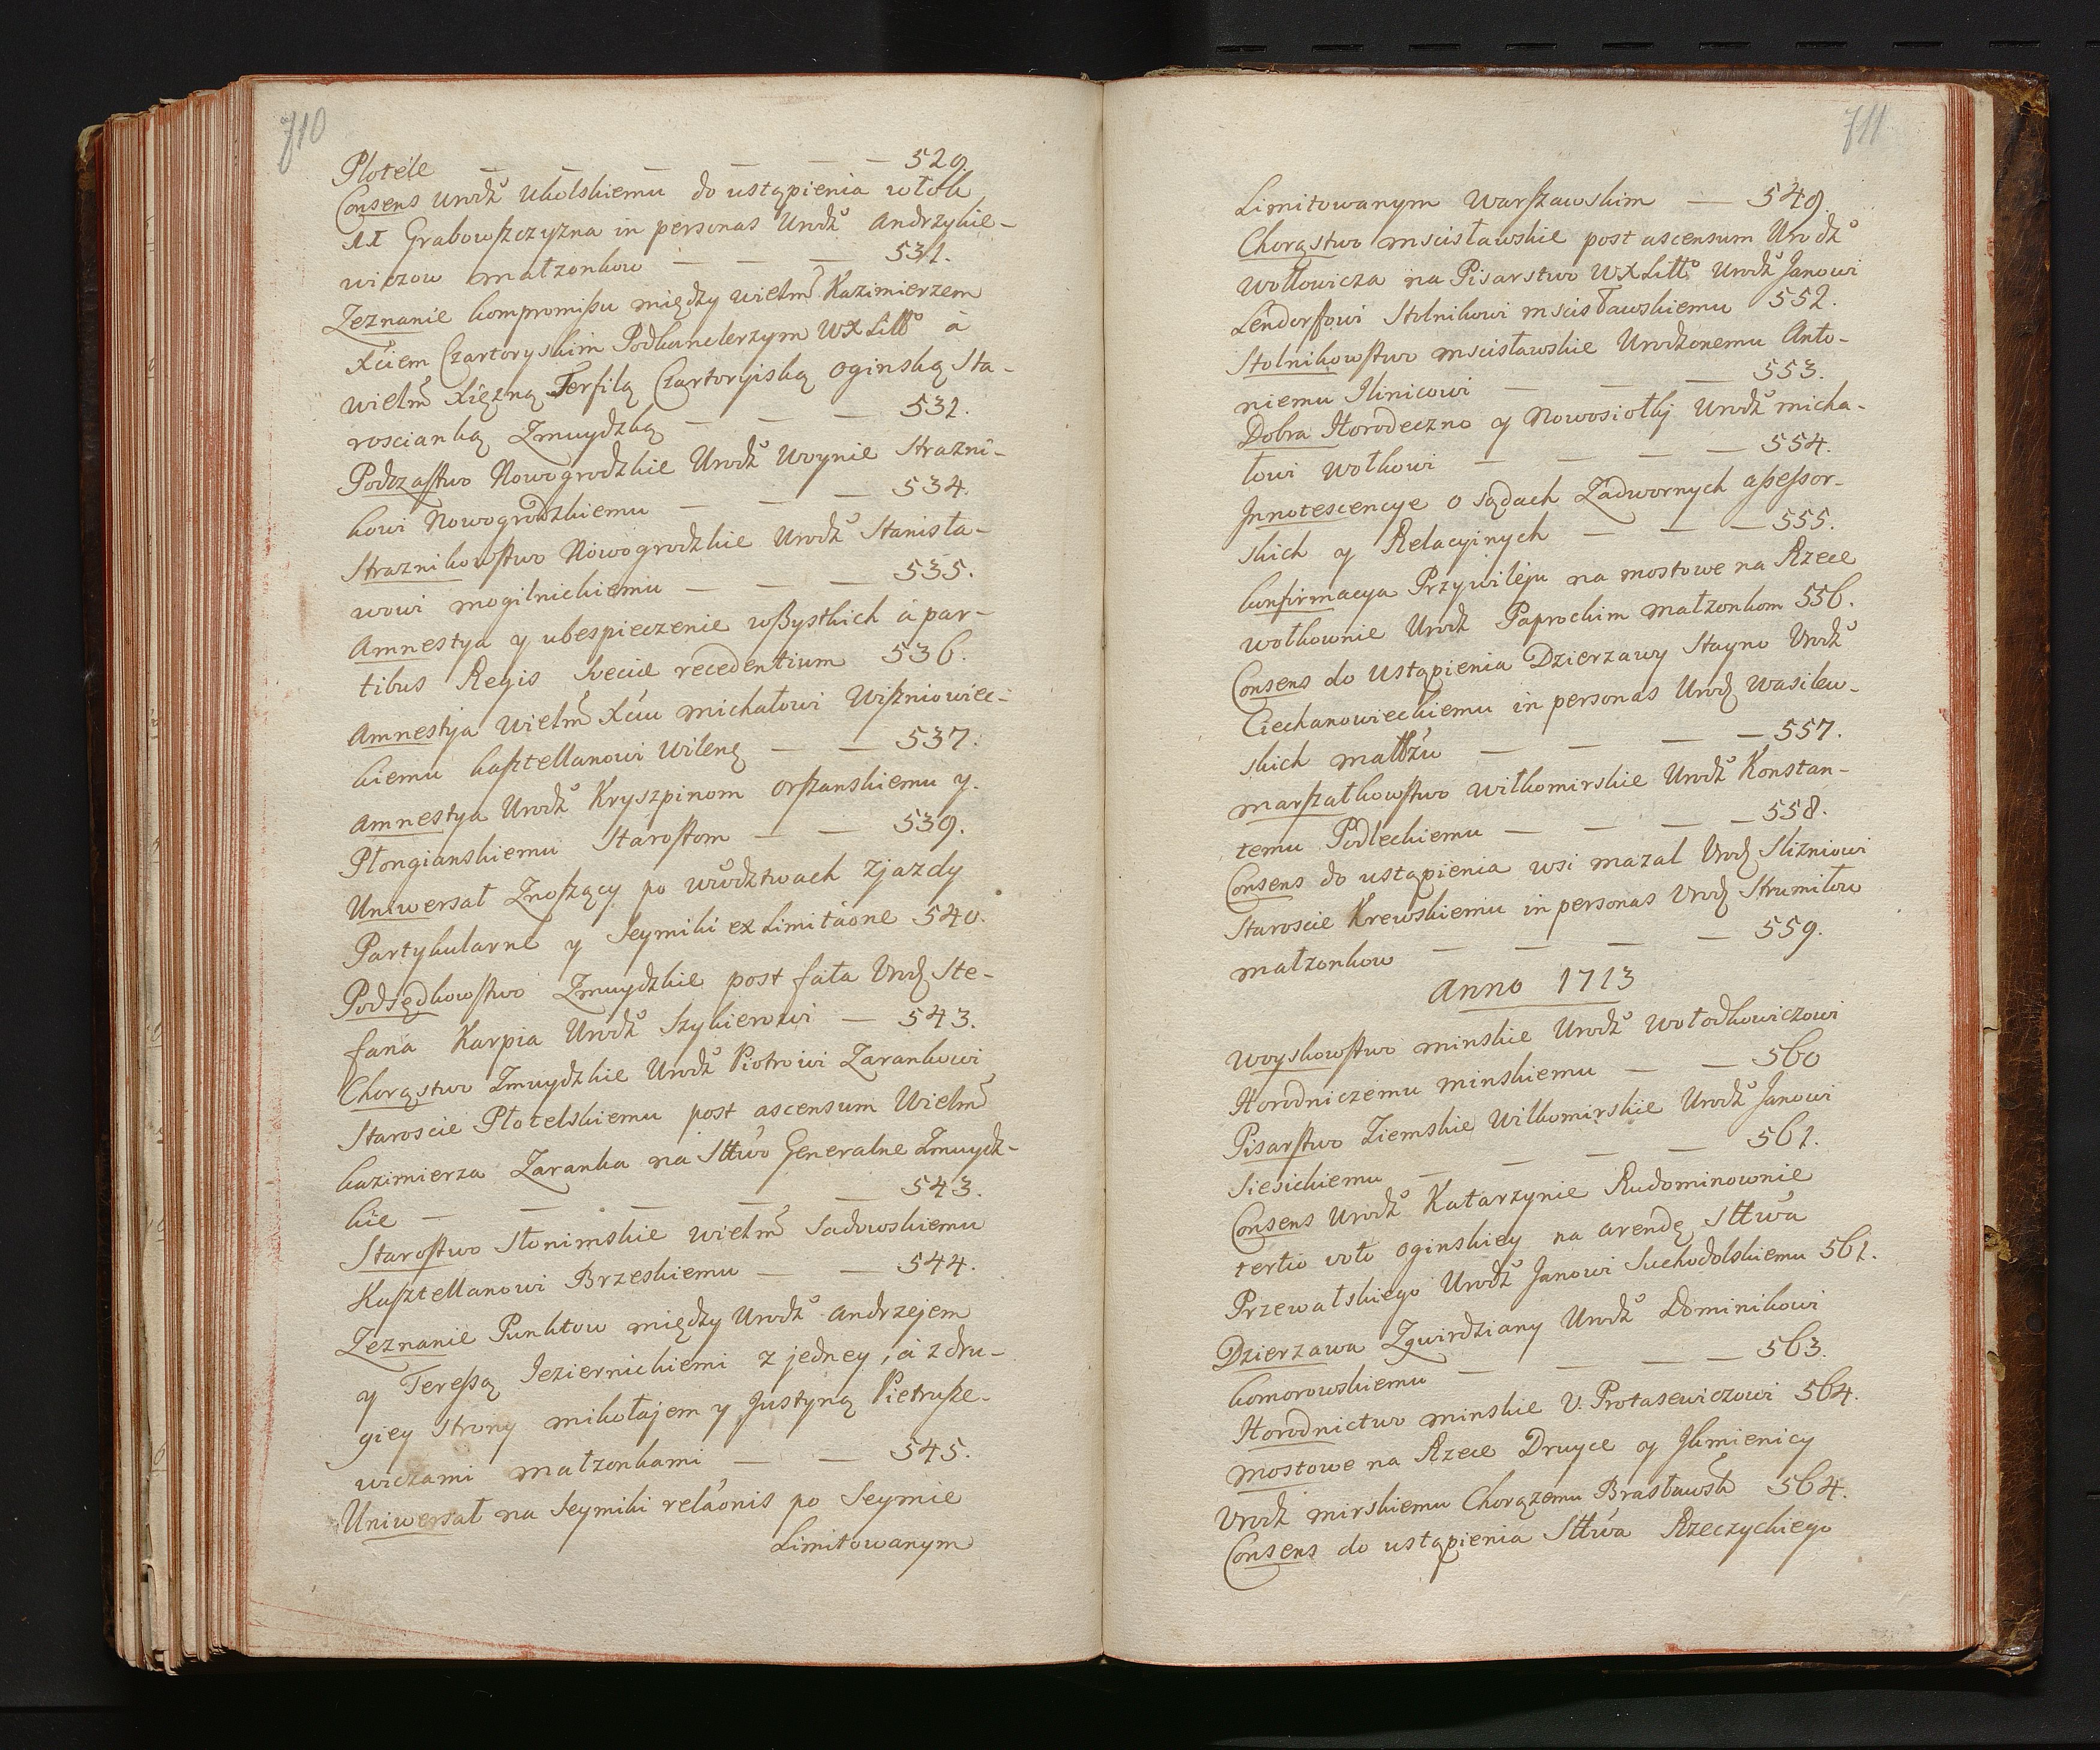 710
Plotele — — — — — — 529.
Consens Urodź° Ukolskiemu do ustąpienia włok
11 Grabowszczyzna in personas Urodź° Andrzykie-
wiczow małzonkow — — — 531.
Zeznanie kompromissu między wielmº Kazimierzem
Xciem Czartoryskim Podkanclerzym WXLittº à
wielmº Xiężną Terfilą Czartoryiską Oginską Sta-
roscianką Zmuydzką — — — 532.
Podczastwo Nowogrodzkie Urodź° Woynie Strazni-
kowi Nowogrodzkiemu — — — 534.
Straznikowstwo Nowogrodzkie Urodź° Stanisła-
wowi Mogilnickiemu — — — 535.
Amnestya y ubespieczenie wszystkich à par-
tibus Regis Sveciæ recedentium 536.
Amnestya Wielmº Xciu Michałowi Wiszniowiec-
kiemu kasztellanowi Wileng — — 537.
Amnestya Urodź° Kryszpinom Orszanskiemu y
Płongianskiemu Starostom — — 539.
Uniwersał Znoszący po wwodztwach Zjazdy
Partykularne y Seymiki ex Limitaone 540.
Podsędkowstwo Zmuydzkie post fata Urodz Ste-
fana Karpia Urodź° Szykierowi — 543.
Chorąstwo Zmuydzkie Urodź° Piotrowi Zarankowi
Staroscie Płotelskiemu post ascensum Wielmº
kazimierza Zaranka na Sttwo Generalne Zmuydz-
kie — — — — — 543.
Starostwo Słonimskie wielmº Sadowskiemu
Kasztellanowi Brzeskiemu — — 544.
Zeznanie Punktow między Urodź° Andrzejem
y Teressą Jeziernickiemi z jedney, à z dru-
giey strony Mikołajem y Justyną Pietrusze-
wiczami małzonkami — — 545.
Uniwersał na Seymiki relaonis po Seymie
Limitowanym
711
Limitowanym Warszawskim — 549.
Chorąstwo Mscisławskie post ascensum Urodź°
Wołłowicza na Pisarstwo WXLittº Urodź° Janowi
Lendorfowi Stolnikowi Mscisławskiemu 552.
Stolnikowstwo Mscisławskie Urodzonemu Anto-
niemu Ilinicowi — — — 553.
Dobra Horodeczno y Nowosiołky Urodź° Micha-
łowi Wołkowi — — — — 554.
Innotescencye o sądach Zadwornych assessor-
skich y Relacyinych — — — 555.
Confirmacya Przywileju na mostowe na Rzece
wołkownie Urodz Paprockim małzonkom 556.
Consens do Ustąpienia Dzierzawy Stayno Urodź°
Ciechanowieckiemu in personas Urodz Wasilew-
skich małłżŭ — — — — 557.
Marszałkowstwo wiłkomirskie Urodź° Konstan-
temu Podleckiemu — — — — 558.
Consens do ustąpienia wsi Mazal Urodz Slizniowi
Staroscie Krewskiemu in personas Urodz Strumiłow
małzonkow — — — — 559.
Anno 1713
Woyskowstwo minskie Urodź° Wołodkowiczowi
Horodniczemu minskiemu — — 560
Pisarstwo Ziemskie Wiłkomirskie Urodź° Janowi
Siesickiemu — — — — 561.
Consens Urodź° Katarzynie Rudominownie
tertio voto Oginskiey na arendę Sttwa
Przewalskiego Urodź° Janowi Suchodolskiemu 561.
Dzierzawa Zgwirdziany Urodź° Dominikowi
komorowskiemu — — — — 563.
Horodnictwo minskie V. Protasewiczowi 564.
Mostowe na Rzece Druyce y Jsmienicy
Urodz Mirskiemu Chorązemu Brasławsk 564.
Consens do ustąpienia Sttwa Rzeczyckiego